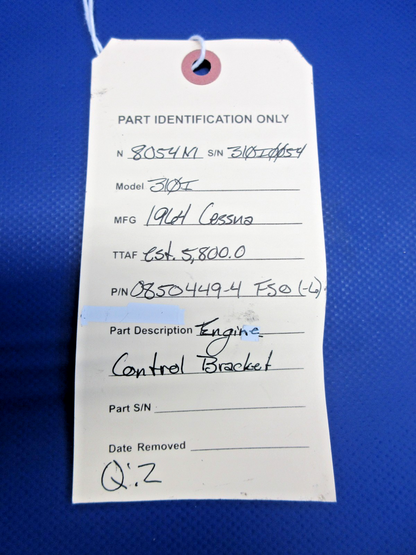 PART IDENTIFICATION ONLY
N 8054M S/N 310I0054
Model 310I
MFG 1964 Cessna
TTAF est. 5,800.0
P/N 0850449-4 FSO (-6)
Part Description Engine
Control Bracket
Part S/N
Date Removed
Q:2